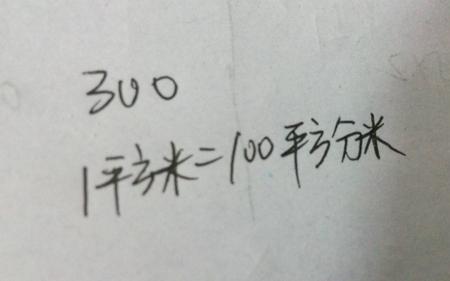 300
1平方米=100平方分米